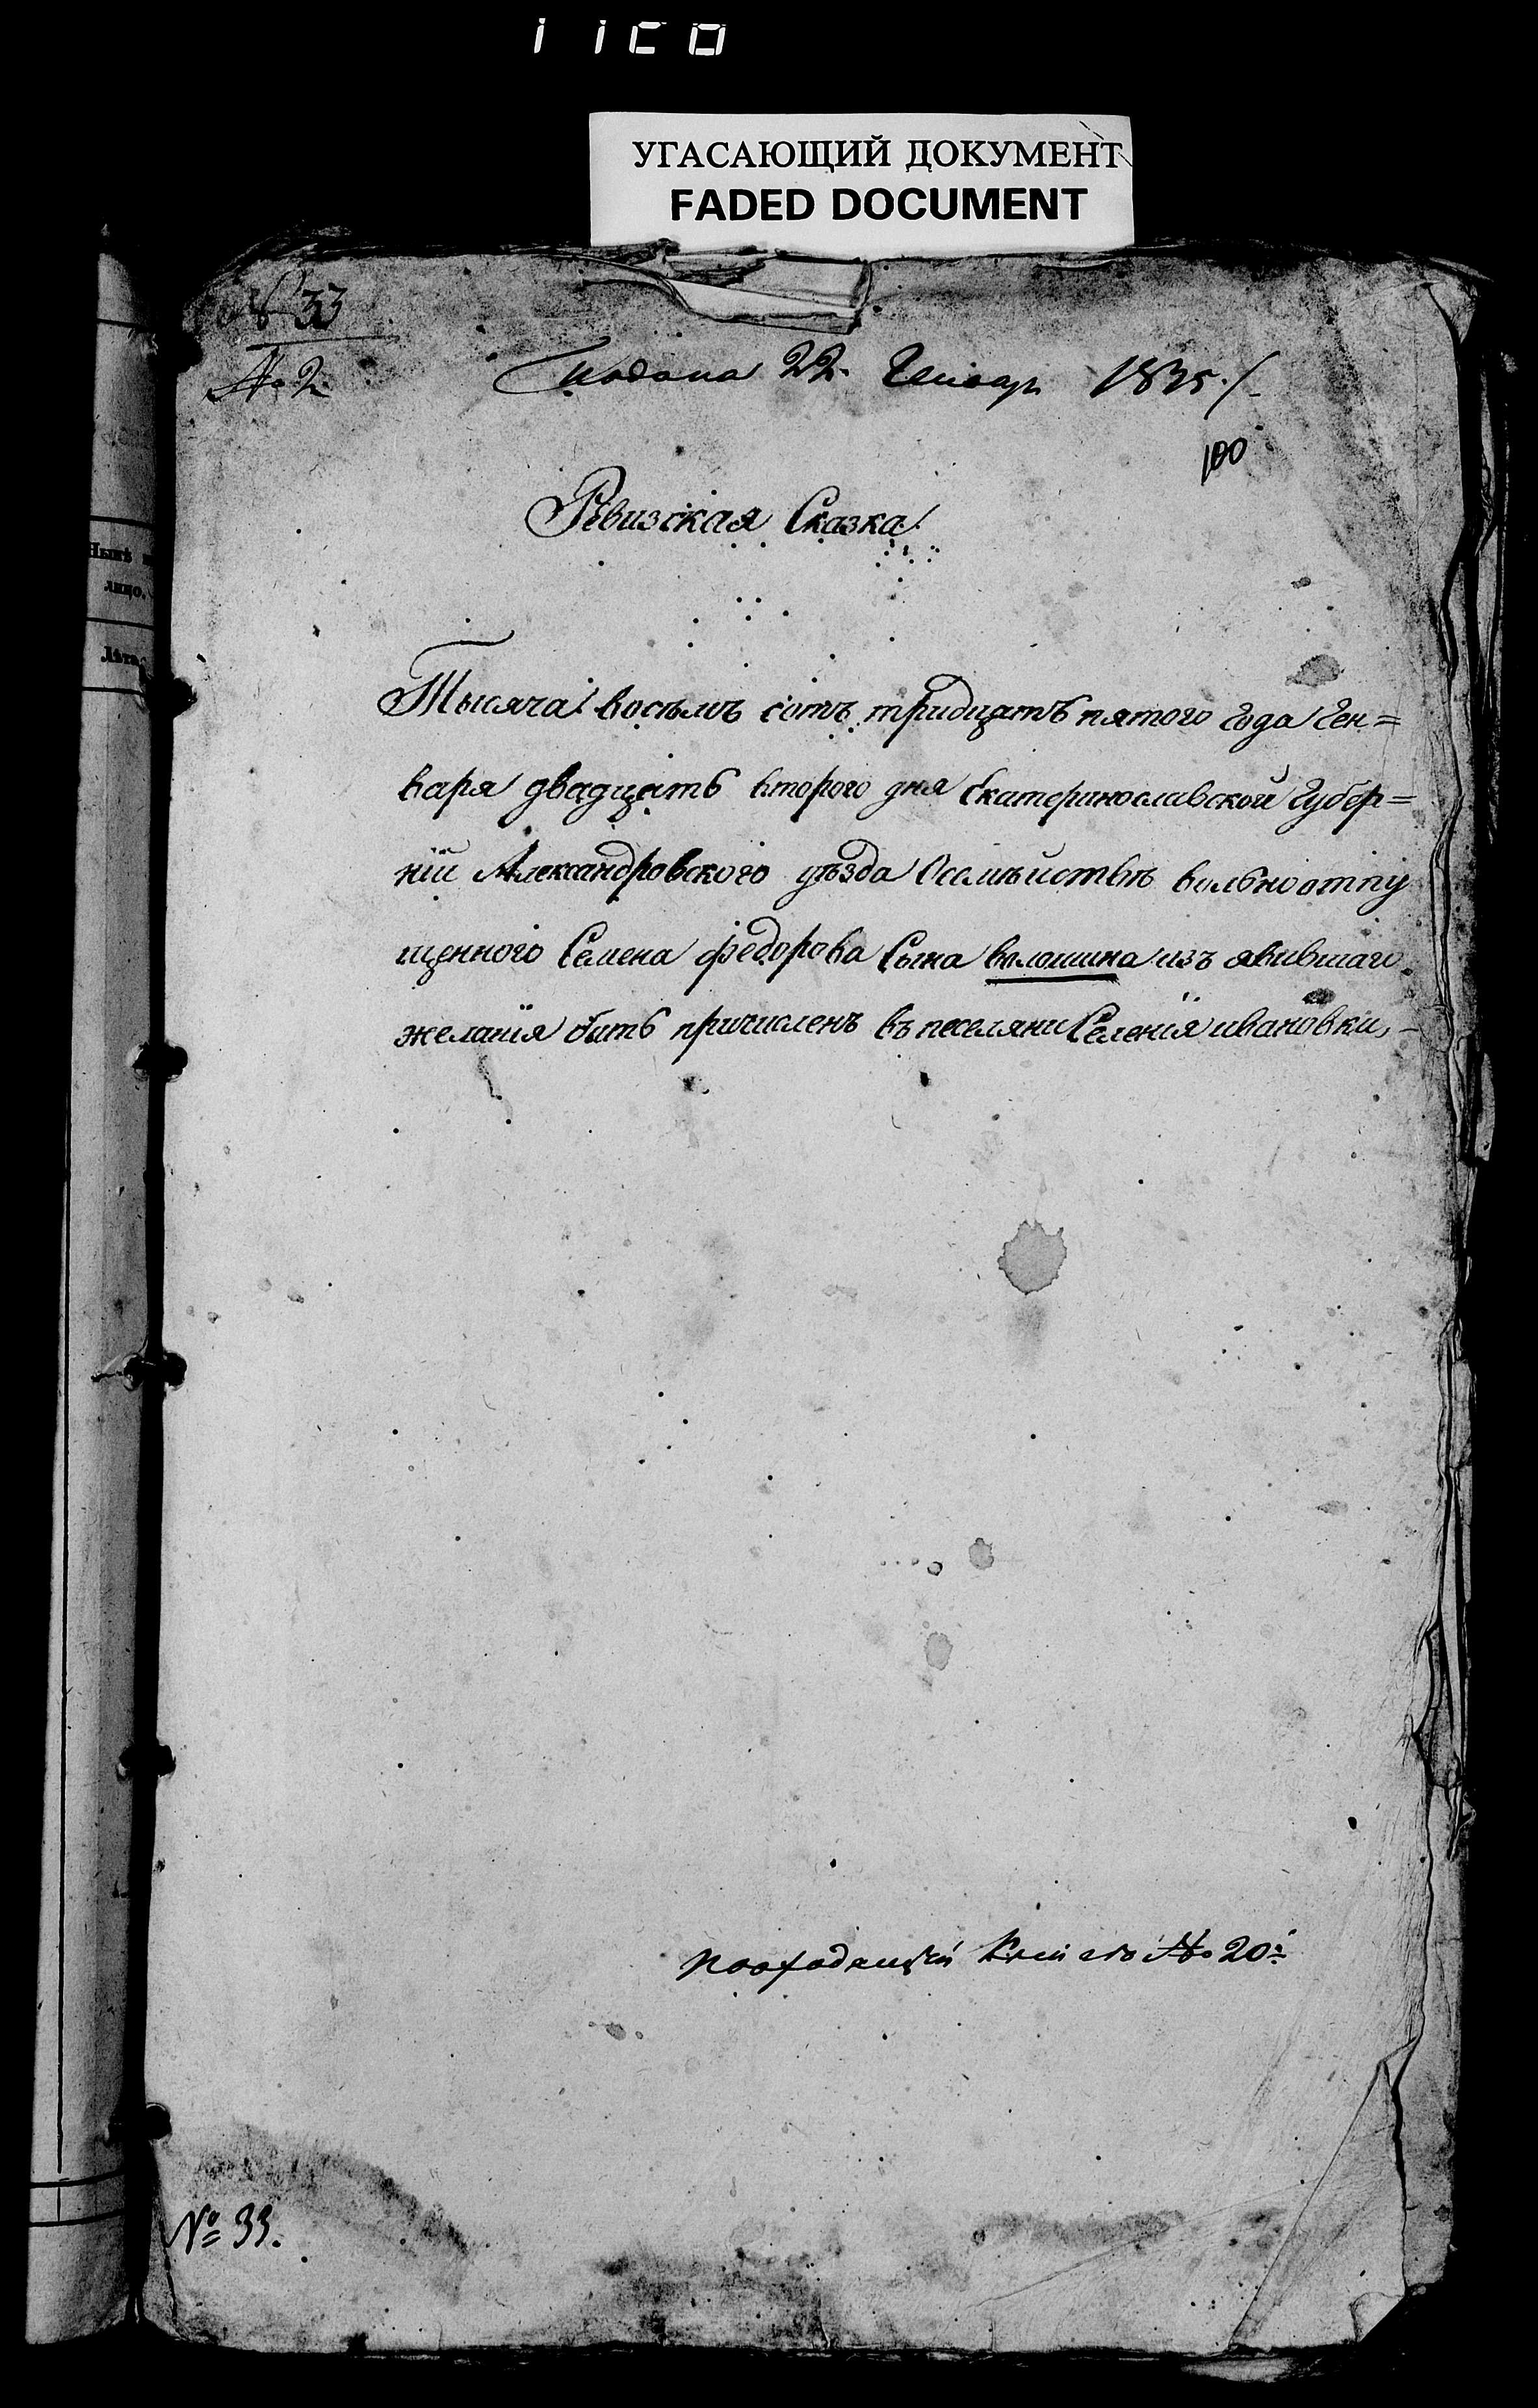 УГАСАЮЩИЙ ДОКУМЕНТ
FADED DOCUMENT
№ 33
№ 2
Подана 22. Генваря 1835.
100
Ревизская Сказка
Тысяча восемъ сотъ тридцать пятого года Ген=
варя двадцать второго дня Екатеринославской Губер=
нїи Александровского уѣзда Осемѣйствѣ вольно отпу
щенного Семена федорова Сына волошина изъ явившаго
желанїя быть причисленъ въ поселяни Селенїя ивановки,
№ 20
№ 33.